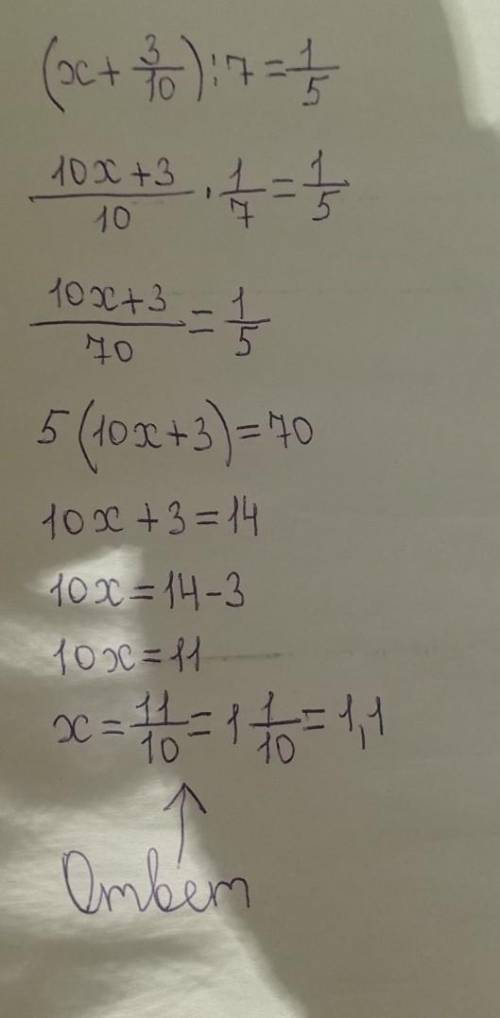 (x + 3/10) : 7 = 1/5
10x + 3/10 · 1/7 = 1/5
10x + 3/70 = 1/5
5(10x + 3) = 70
10x + 3 = 14
10x = 14 - 3
10x = 11
x = 11/10 = 1 1/10 = 1,1
Ответ